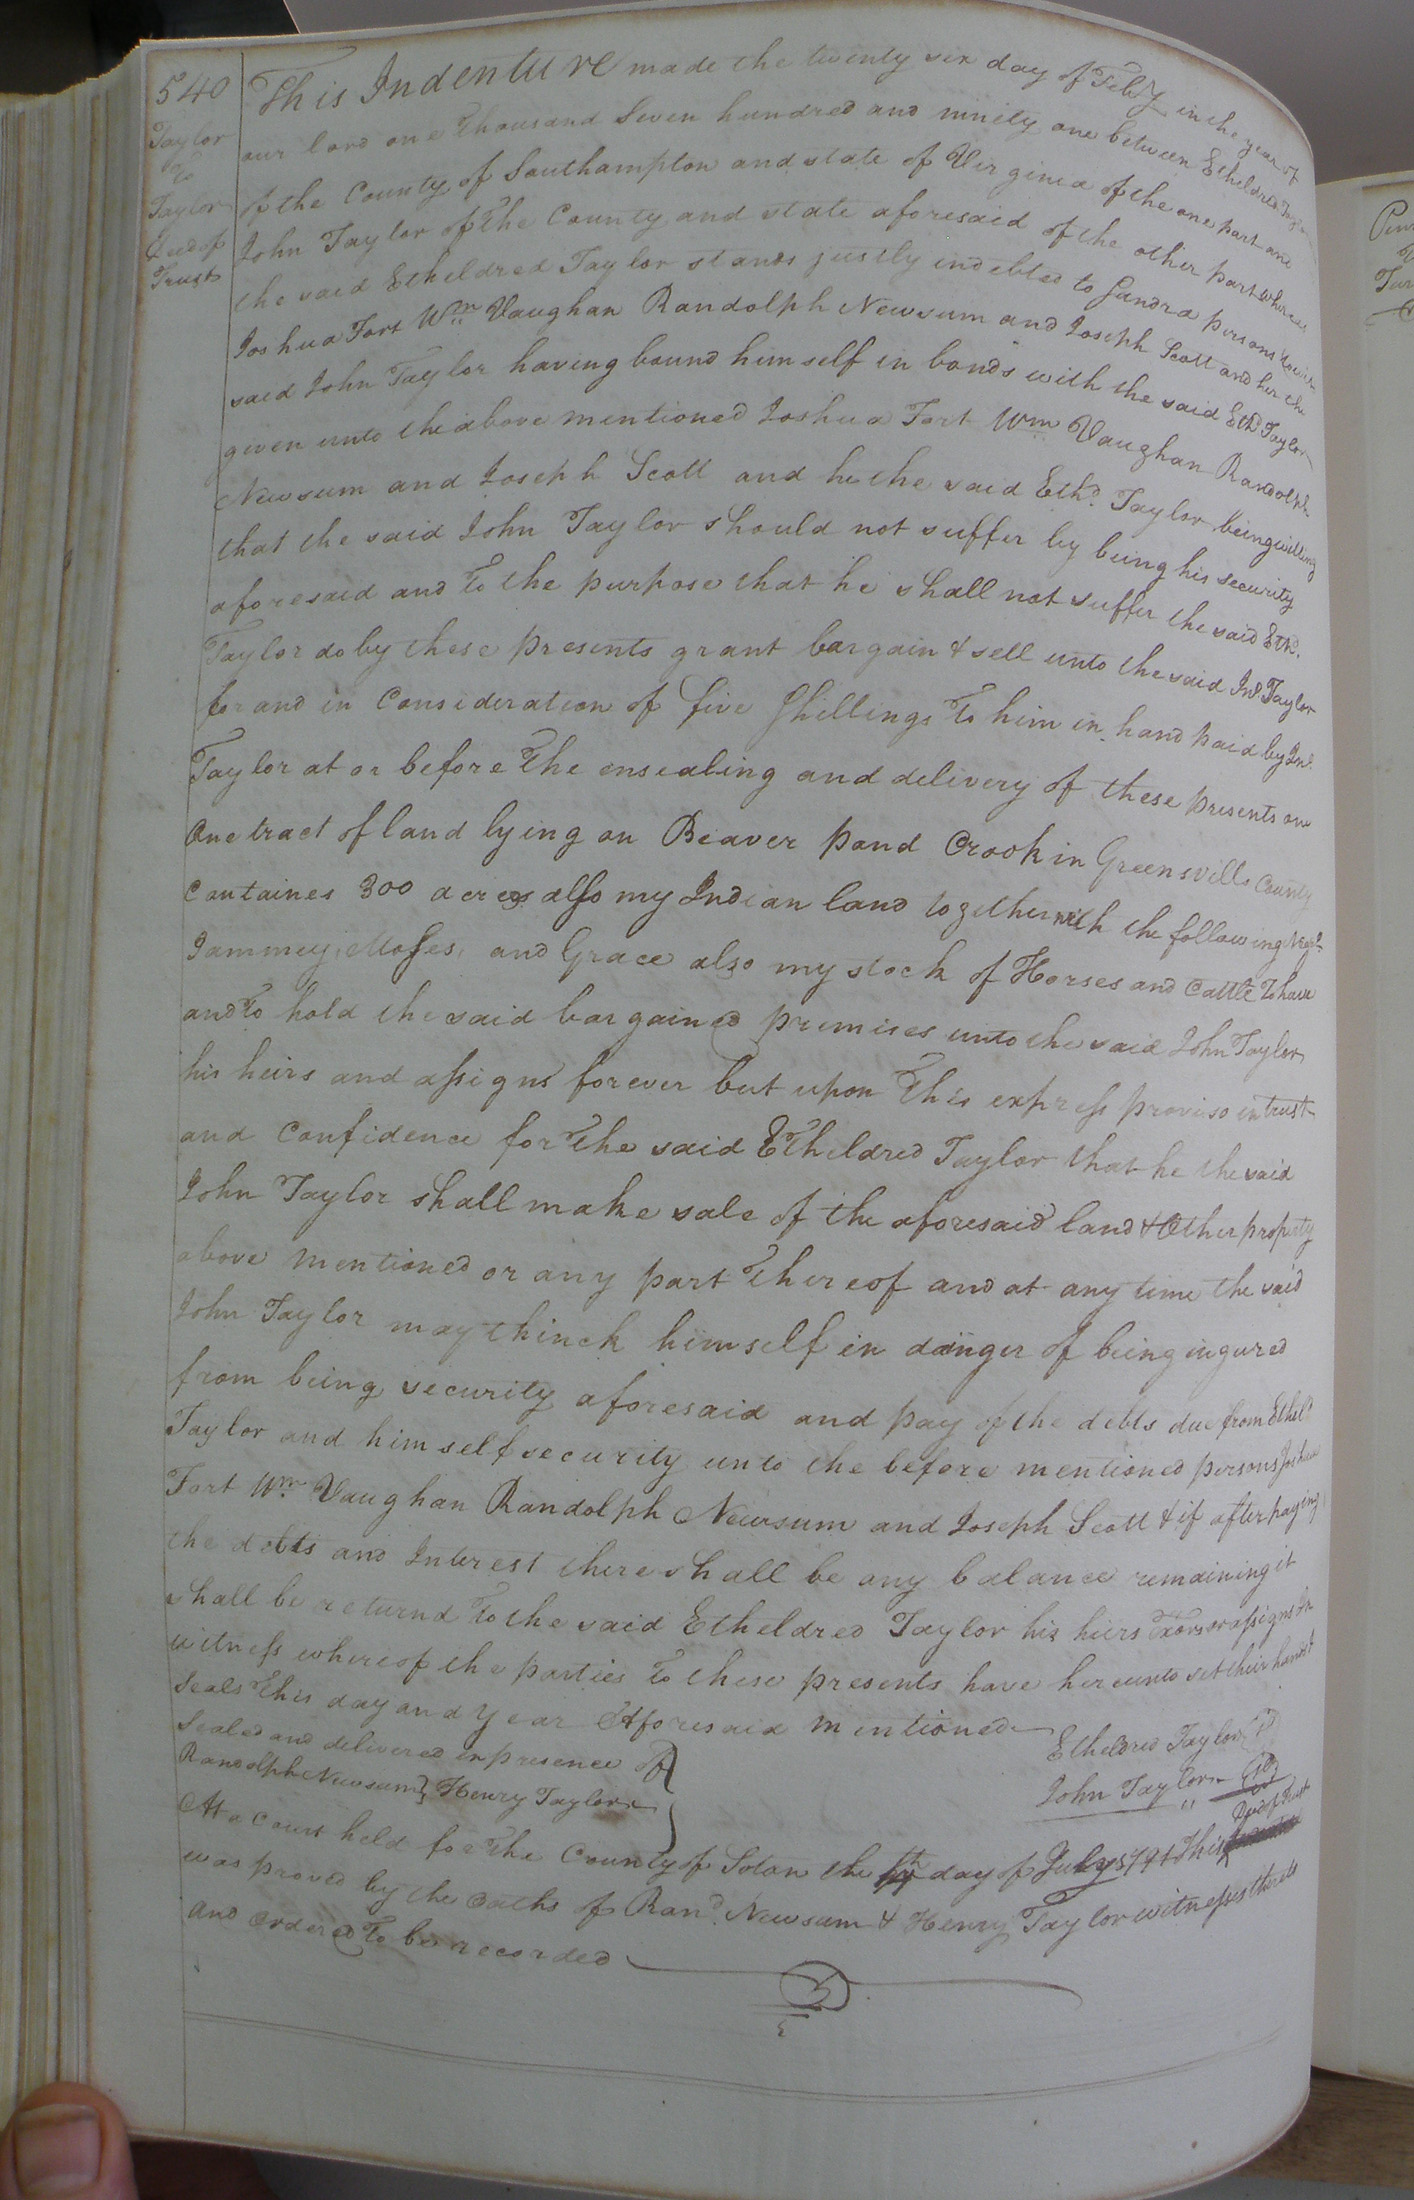 540
Taylor
to
Taylor
Deed of
Trust
This Indenture made the twenty six day of Feby in the year of
our lord one Thousand Seven hundred and ninety one between Etheldred Taylor
of the County of Southampton and state of Virginia of the one part and
John Taylor of the County and state aforesaid of the other part whereas
the said Etheldred Taylor stands justly indebted to Sundra persons
Joshua Fort Wm Vaughan Randolph Newsum and Joseph Scott and her the
said John Taylor having bound himself in bonds with the said Ethd. Taylor
given unto the above mentioned Joshua Fort Wm Vaughan Randolph
Newsum and Joseph Scott and he the said Ethd. Taylor being willing
that the said John Taylor should not suffer by being his security
aforesaid and To the purpose that he shall not suffer the said Ethd.
Taylor do by these presents grant bargain & sell unto the said Jno Taylor
for and in Consideration of five Shillings To him in hand paid by Jno.
Taylor at or before The ensealing and delivery of these presents one
One tract of land lying on Beaver pond Crook in Greensville County
Containes 300 acres also my Indian land together with the following
Jammey, Moses, and Grace also my stock of Horses and Cattle To have
and To hold the said bargained premises unto the said John Taylor
his heirs and assigns forever but upon This express proviso in trust
and Confidence for The said Etheldred Taylor that he the said
John Taylor shall make sale of the aforesaid land & Other property
above mentioned or any part Thereof and at any time the said
John Taylor may thinck himself in dainger of being ingured
from being security aforesaid and pay of the debts due from Etheld
Taylor and himself security unto the before mentioned persons Joshua
Fort Wm. Vaughan Randolph Newsum and Joseph Scott & if after paying
the debts and Interest there shall be any balance remaining it
shall be returnd To the said Etheldred Taylor his heirs Exors or assigns In
witness whereof the parties To these presents have hereunto set their hands &
Seals This day and year Aforesaid mentioned
Etheldred Taylor
Sealed and delivered in presence of
John Taylor
Randolph Newsum } Henry Taylor
Deed of Trust
At a Court held for The County of Soton the day of July 1791 This
was proved by the Oaths of Rand. Newsum & Henry Taylor witnesses thereto
and Ordered To be recorded